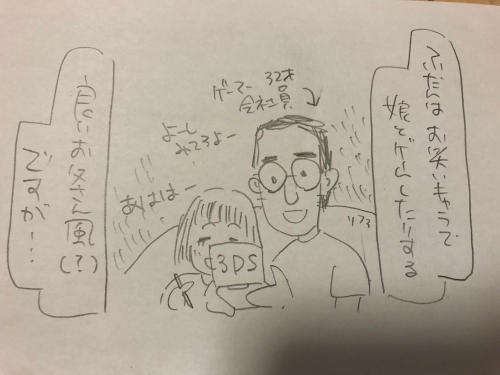 ふだんはお笑いキャラで
娘とゲームしたりする
ゲーマー 32才
会社員
よーし
みてろよー
あははー
3DS
良いお父さん風(?)
ですが…